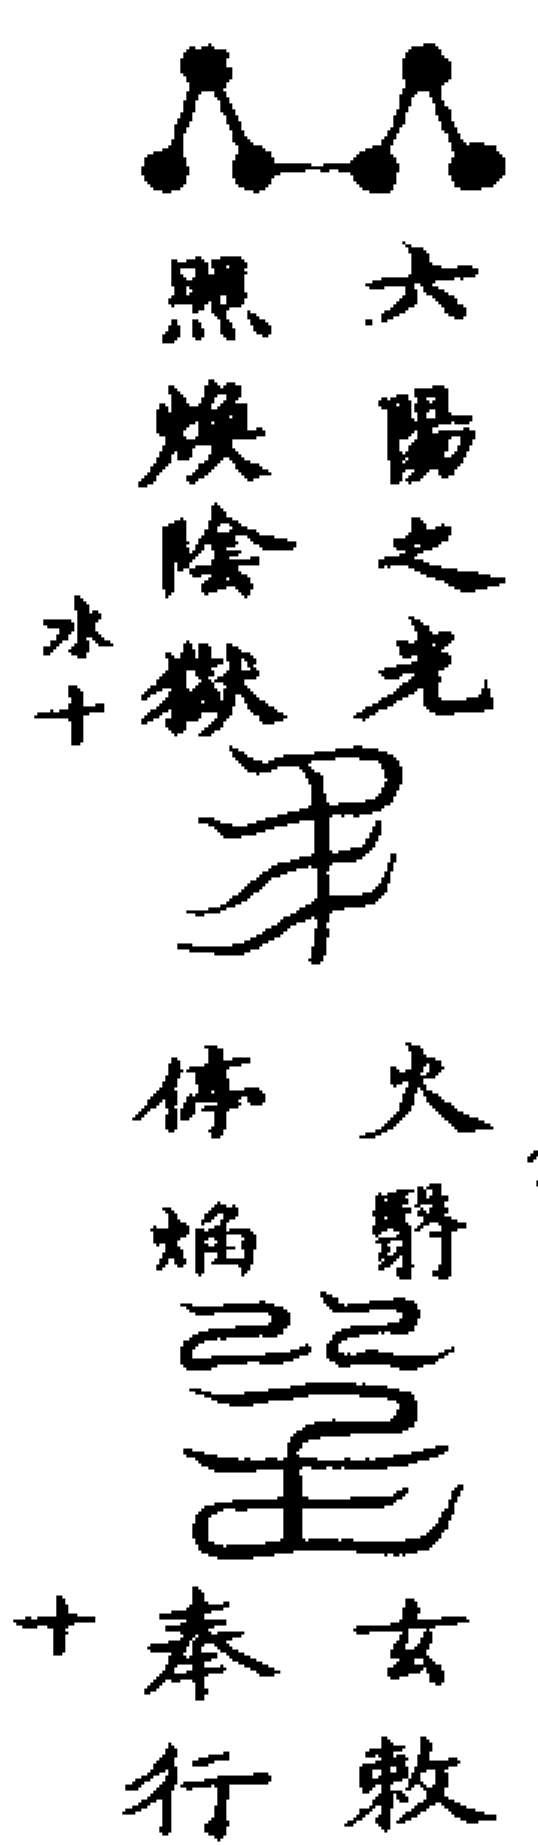 太陽之光
照煥陰獄
水十
火翳
停焰
玄敕
奉行
十